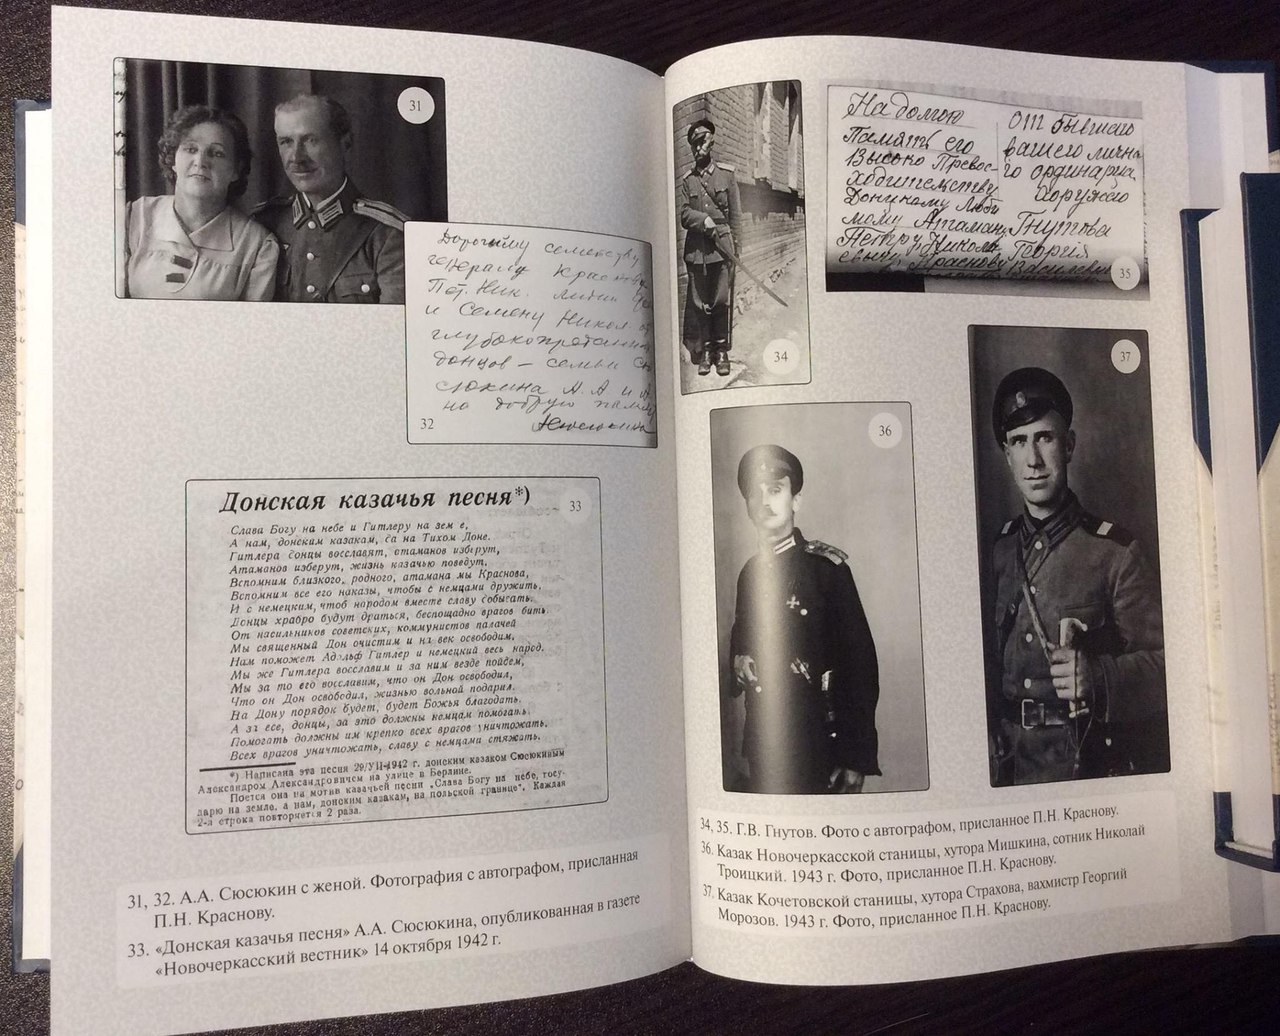 31
Дорогому семейству
генерала
Пет. Ник.
и Семену Никол
глубокопреданных
донцов – семьи Сю
сюкина А. А и А.
на добрую память
32
Донская казачья песня*)
33
Слава Богу на небе и Гитлеру на зем е,
А нам, донским казакам, да на Тихом Доне.
Гитлера донцы восславят, атаманов изберут,
Атаманов изберут, жизнь казачью поведут.
Вспомним близкого, родного, атамана мы Краснова,
Вспомним все его наказы, чтобы с немцами дружить,
И с немецким, чтоб народом вместе славу добывать.
Донцы храбро будут драться, беспощадно врагов бить.
От насильников советских, коммунистов палачей
Мы священный Дон очистим и на век освободим.
Нам поможет Адольф Гитлер и немецкий весь народ.
Мы же Гитлера восславим и за ним везде пойдем,
Мы за то его восславим, что он Дон освободил,
Что он Дон освободил, жизнью вольной подарил.
На Дону порядок будет, будет Божья благодать.
А за все, донцы, за это должны немцам помогать.
Помогать должны им крепко всех врагов уничтожать.
Всех врагов уничтожать, славу с немцами стяжать.
*) Написана эта песня 29/VII-1942 г. донским казаком Сюсюкиным
Александром Александровичем на улице в Берлине.
Поется она на мотив казачьей песни „Слава Богу на небе, госу-
дарю на земле, а нам, донским казакам, на польской границе". Каждая
2-я строка повторяется 2 раза.
31, 32. А.А. Сюсюкин с женой. Фотография с автографом, присланная
П.Н. Краснову.
33. «Донская казачья песня» А.А. Сюсюкина, опубликованная в газете
«Новочеркасский вестник» 14 октября 1942 г.
34
На долгою
Память его
Высоко Превос-
ходительству
Донскому Люби
мому Атаману
Петру Николь
евичу Краснову
от бывшаго
вашего лична
го ординарца
Хоружего
Гнутова
Георгія
Василевич
35
36
37
34, 35. Г.В. Гнутов. Фото с автографом, присланное П.Н. Краснову.
36. Казак Новочеркасской станицы, хутора Мишкина, сотник Николай
Троицкий. 1943 г. Фото, присланное П.Н. Краснову.
37. Казак Кочетовской станицы, хутора Страхова, вахмистр Георгий
Морозов. 1943 г. Фото, присланное П.Н. Краснову.